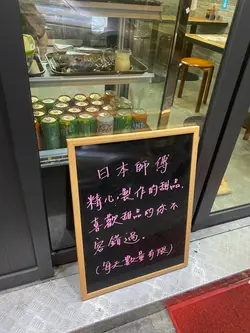 日本師傅
精心製作的甜品,
喜歡甜品的你不
容錯過.
(每天數量有限)